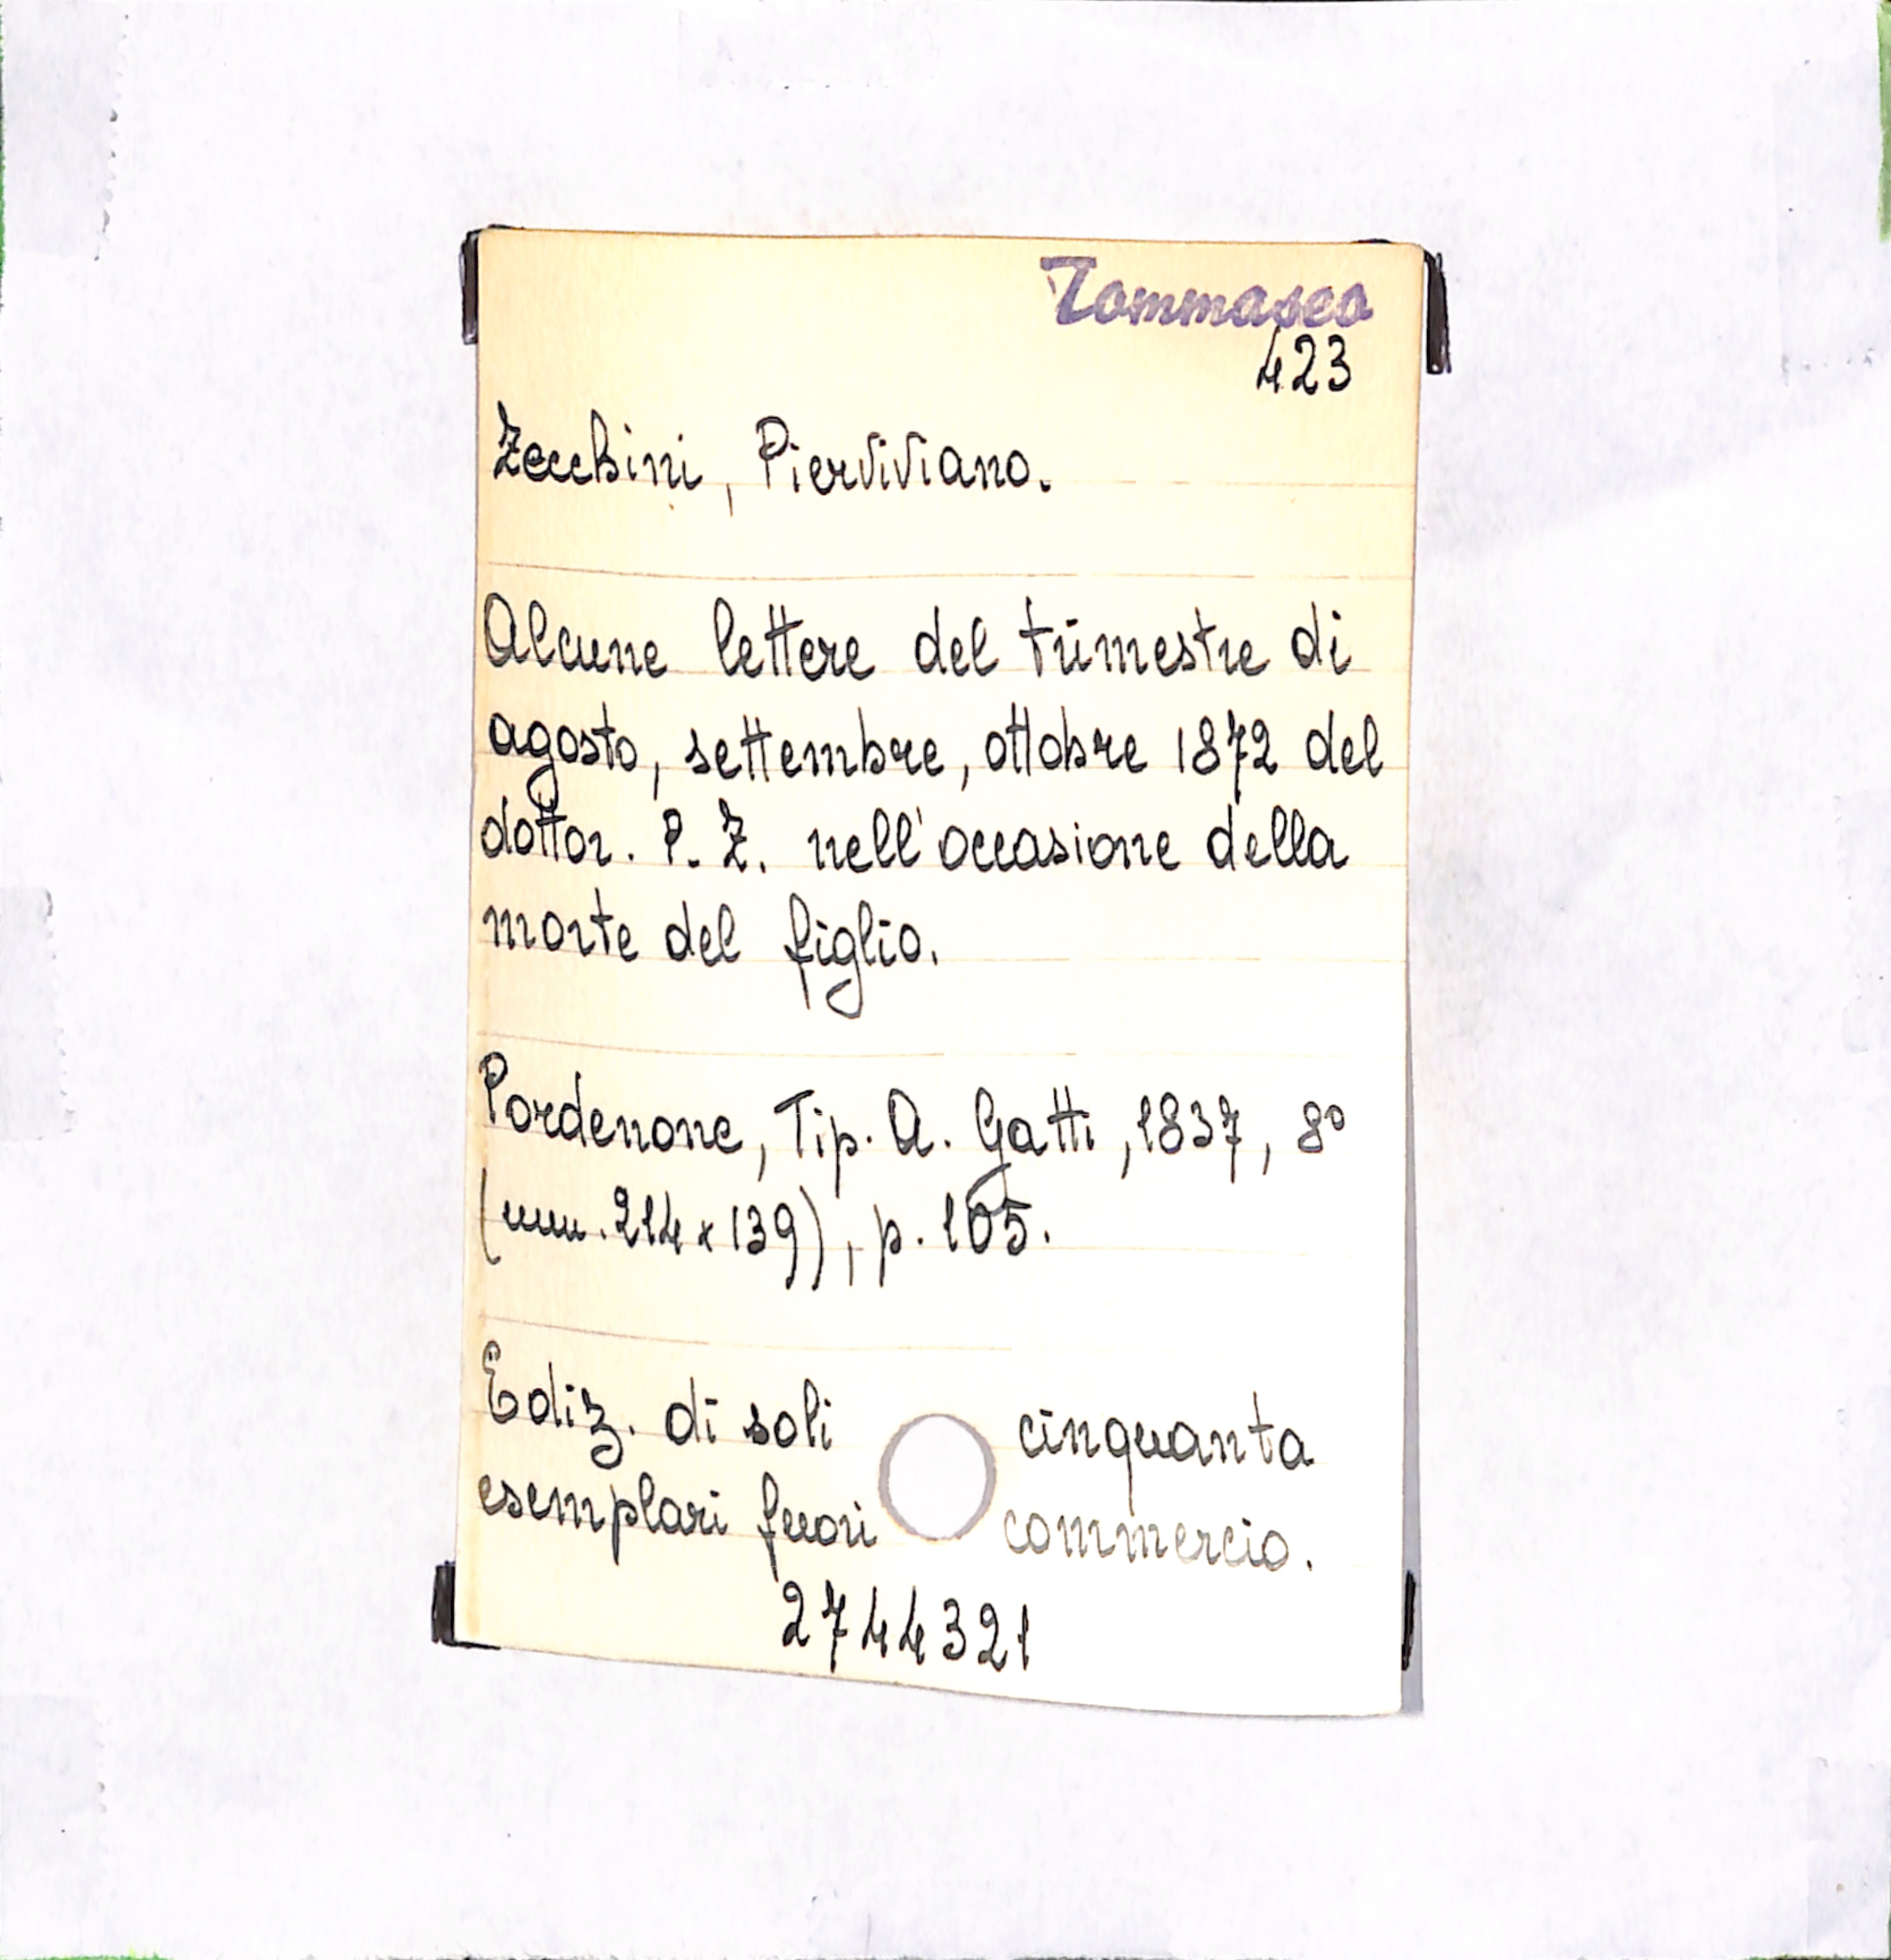 Tommaseo
423
Zecchini, Pierviviano.
Alcune lettere del trimestre di
agosto, settembre, ottobre 1872 del
dottor. P. Z. nell'occasione della
morte del figlio.
Pordenone, Tip. A. Gatti, 1837, 8º
(mm. 214 x 139), p. 105.
Ediz. di soli cinquanta
esemplari fuori commercio.
2744321